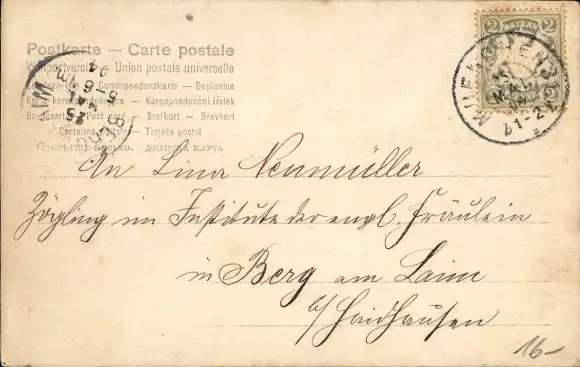 Postkarte — Carte postale
Weltpostverein — Union postale universelle
Correspondenzkarte — Dopisnice
Karta korespondencyjna — Korespondenční lístek
Post card — Brefkort — Brevkort
Cartolina postale — Tarjeta postal
ОТКРЫТОЕ ПИСЬМО. — ДОПИСНА КАРТА
BAYERN
2 2
2 2
MUENCHEN 3
MAI
04
25
5-6
04
An Lina Neumüller
Zögling im Institute der engl. Fräulein
in Berg am Laim
b/ Haidhausen
16-